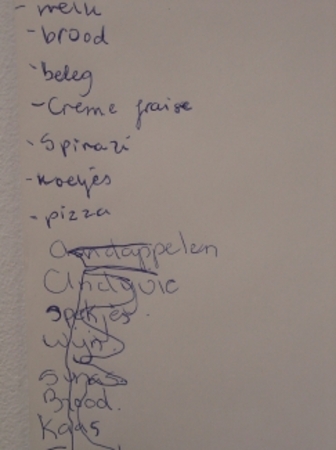 - melk
- brood
- beleg
- Creme fraise
- Spinazi
- koetjes
- pizza
Aardappelen
Andijvie
Spekjes.
Wijn.
Brood.
Kaas